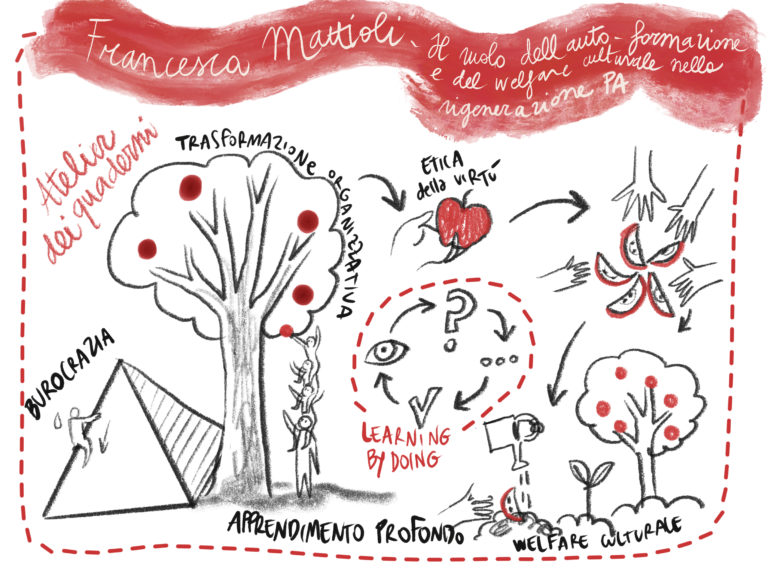 Francesca Mattioli - Il ruolo dell'auto-formazione
e del welfare culturale nella
rigenerazione PA
Atelier
dei quaderni
TRASFORMAZIONE ORGANIZZATIVA
ETICA
della VIRTÚ
BUROCRAZIA
?
...
LEARNING
BY DOING
APPRENDIMENTO PROFONDO
WELFARE CULTURALE